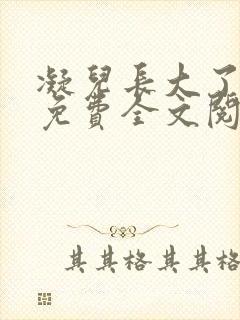 凝兒長大了
免費全文閱
其其格其其格